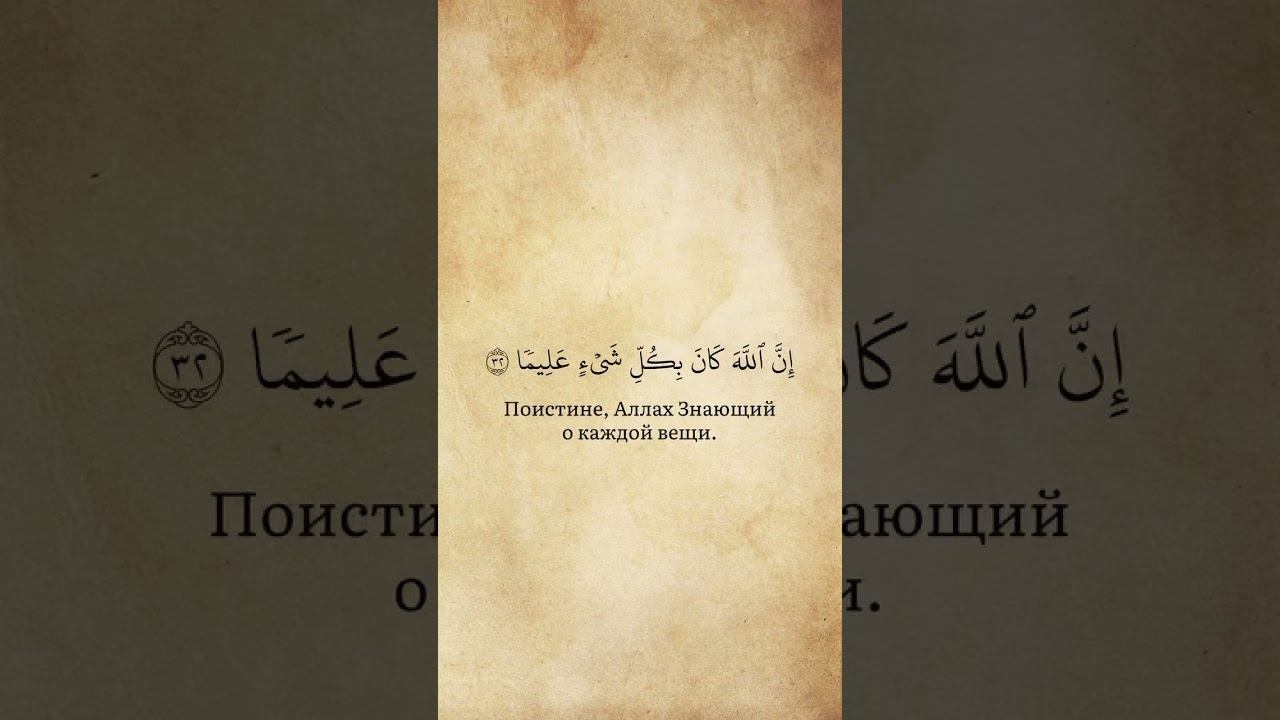 إِنَّ ٱللَّهَ كَانَ بِكُلِّ شَىْءٍ عَلِيمًا ٣٢
Поистине, Аллах Знающий
о каждой вещи.